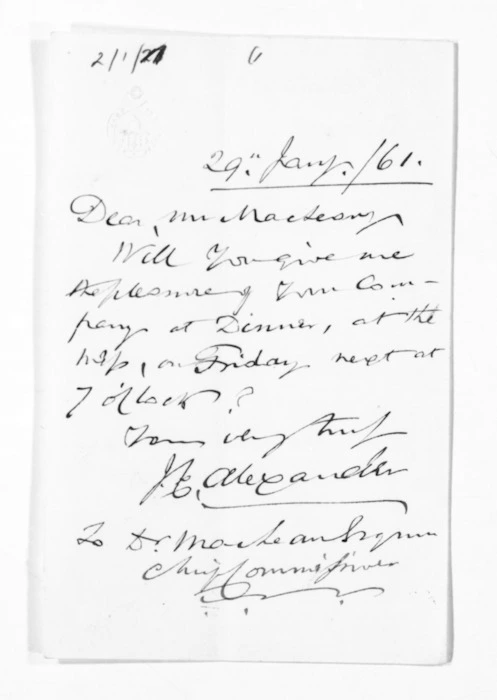 2/1/21
29" Jany. /61.
Dear Mr Maclean,
Will You give me
the pleasure of Your Com-
pany at Dinner, at the
on Friday next at
7 o'Clock?
Yours very truly
J. E. Alexander
To Dr. Maclean
Chief Commissioner